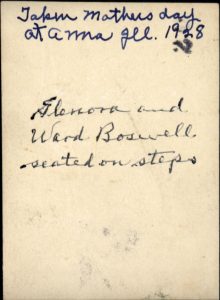 Taken Mothers day
at Anna Ill. 1928
Glenora and
Ward Boswell
seated on steps